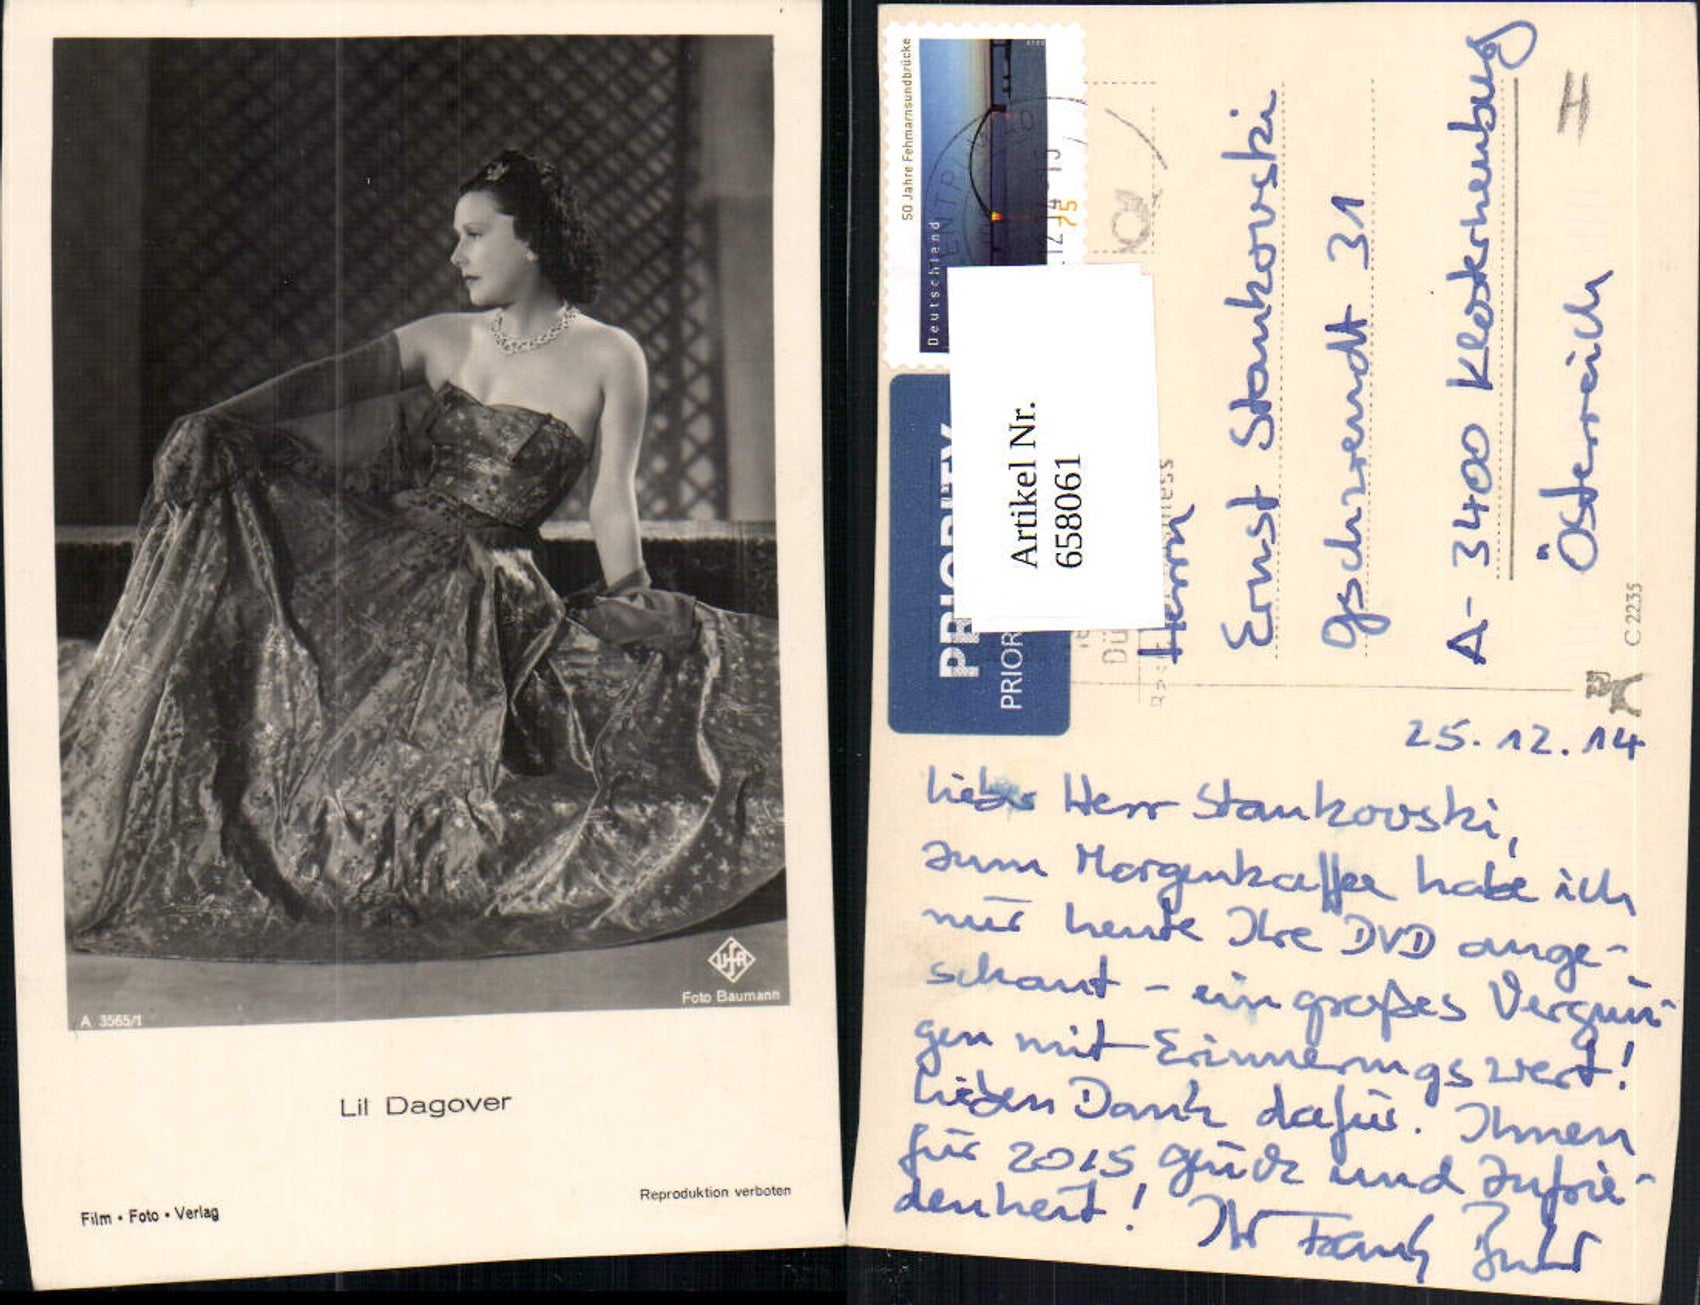 Ufa
Foto Baumann
A 3565/1
Lil Dagover
Reproduktion verboten
Film • Foto • Verlag
50 Jahre Fehmarnsundbrücke
Deutschland
75
PRIORITY
PRIOR
Artikel Nr.
658061
Herrn
Ernst Stankovski
Gschwendt 31
A-3400 Klosterneuburg
Österreich
C 2235
25.12.14
Lieber Herr Stankovski,
zum Morgenkaffee habe ich
mir heute Ihre DVD ange-
schaut - ein großes Vergnü-
gen mit Erinnerungswert!
Lieben Dank dafür. Ihnen
für 2015 Glück und Zufrie-
denheit! Ihr Frank